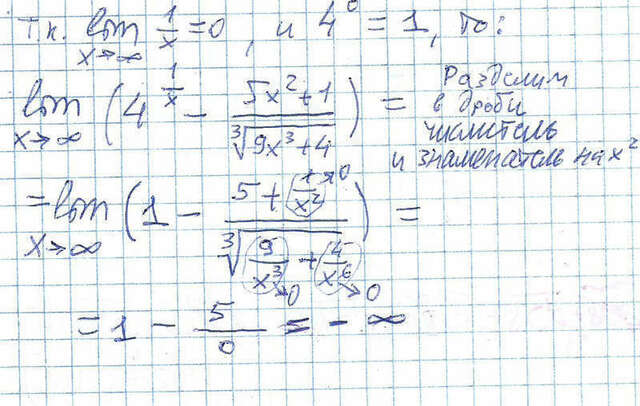 Т.к. lim 1/x = 0, и 4^0 = 1, то:
x→∞
lim (4^(1/x) - (5x² + 1)/∛(9x³ + 4)) =
x→∞
Разделим
в дроби
числитель
и знаменатель на x²
= lim (1 - (5 + (1/x²)→0)/∛((9/x³)→0 + (4/x⁶)→0)) =
x→∞
= 1 - 5/0 = - ∞